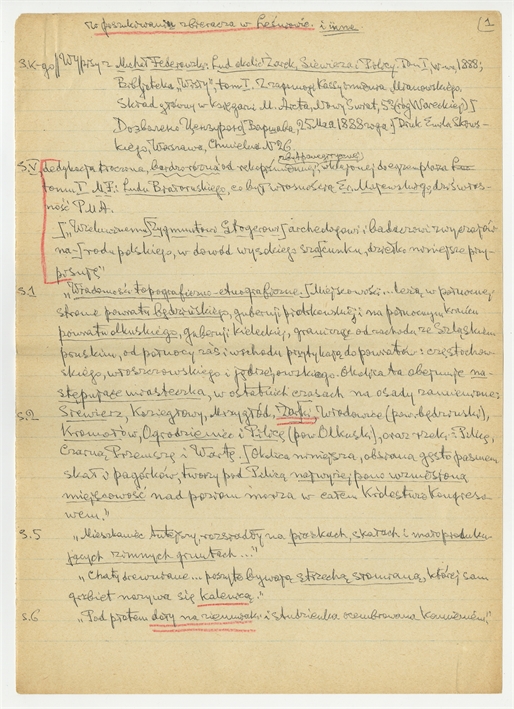 Po poszukiwaniu zbieracza w Leśniowie i inne
1
S.K-go/ Wypisy z Michał Federowski: Lud okolic Żarek, Siewierza i Pilicy. Tom I, W-wa, 1888;
Biblioteka „Wisły", tom I. Z zapomogi Kasy imienia Mianowskiego.
Skład główny w księgarni M. Arcta, Nowy Świat, 53 (róg Wareckiej) [
Dozwoleno Cenzuroju Варшава, 25 Maja 1888 roga [Druk Emila Skiws-
kiego, Warszawa, Chmielna N 26
S.V. dedykacja tłoczona, bardzo różna od rękopiśmiennej, wklejonej do egzemplarza
tomu I M.F. Ludu Białoruskiego, co był własnością E. Majewskiego, dziś włas-
ność P.M.A.
[„Wielmożnemu] Zygmuntowi Glogerowi [archeologowi i badaczowi zwyczajów
na-[rodu polskiego, w dowód wysokiego szacunku, dziełko niniejsze przy-
pisuję"
s.1 „Wiadomości topograficzno-etnograficzne. [Miejscowości... leżą w północnej
stronie powiatu będzińskiego, guberni piotrkowskiej i na północnym krańcu
powiatu olkuskiego, guberni kieleckiej, granicząc od zachodu ze Szląskiem
pruskim, od północy zaś i wschodu przytykają do powiatów: częstochow-
skiego, włoszczowskiego i jędrzejowskiego. Okolica ta obejmuje na-
stępujące miasteczka, w ostatnich czasach na osady zamienione:
s.2 Siewierz, Koziegłowy, Mrzygłód, Żarki, Włodowice (pow. będziński),
Kromołów, Ogrodzieniec i Pilicę (pow. Olkuski), oraz rzeki: Pilicę,
Czarną Przemszę i Wartę. [Okolica niniejsza, obsiana gęsto pasmem
skał i pagórków, tworzy pod Pilicą najwyżej pono wzniesioną
miejscowość nad poziom morza w całem Królestwie Kongreso-
wem."
s.5 „Mieszkaniec tutejszy, rozsiadły na piaskach, skałach i małoproduku-
jących zimnych gruntach..."
„Chaty drewniane... poszyte bywają strzechą słomianą, której sam
grzbiet nazywa się kalenicą."
s.6 „Pod płotem doły na ziemniaki i studzienka ocembrowana kamieniem."